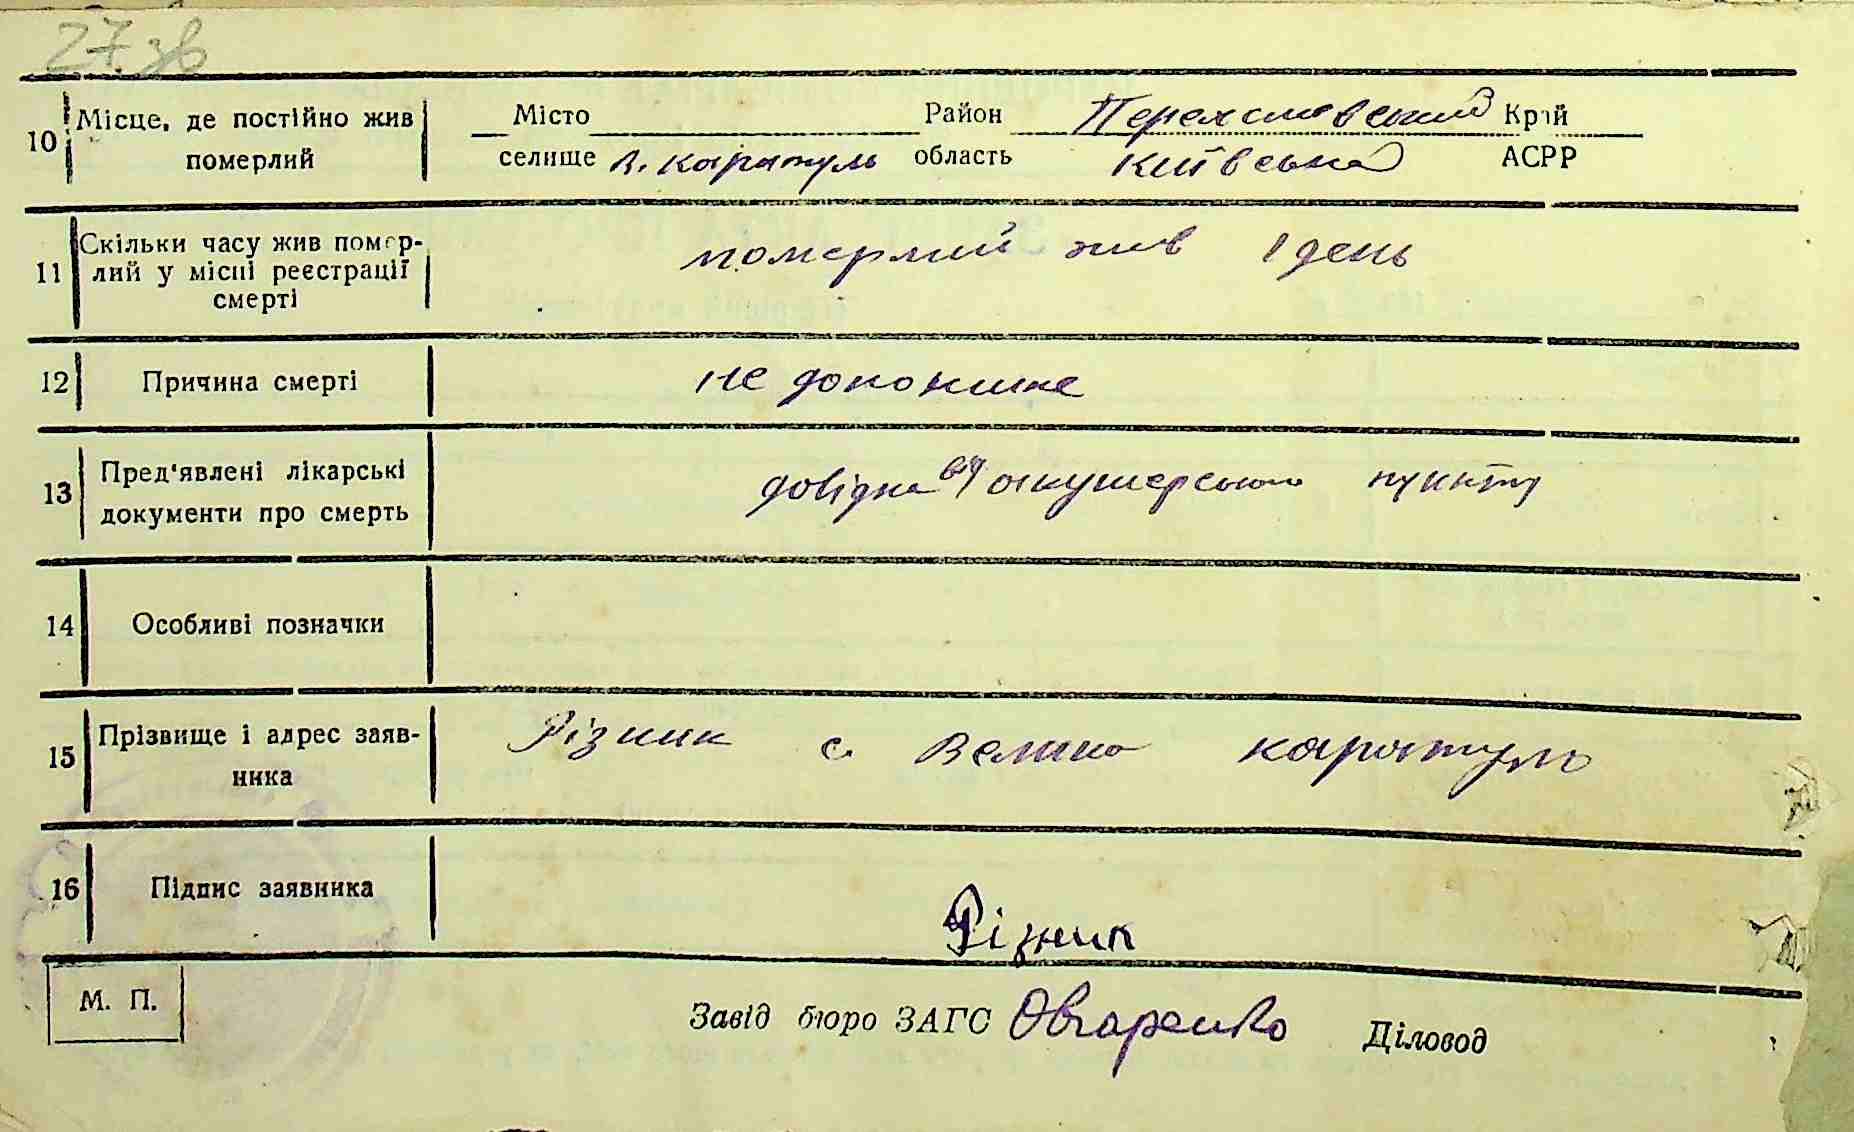 27 зв
10 Місце, де постійно жив померлий
Місто Район Переяславський Край
селище В. Каратуль область Київська АСРР
11 Скільки часу жив помер-
лий у місці реєстрації
смерті
померлий жив 1 день
12 Причина смерті
не доношене
13 Пред'явлені лікарські
документи про смерть
довідка від акушерського пункту
14 Особливі позначки
15 Прізвище і адрес заяв-
ника
Різник с Велика каратуль
16 Підпис заявника
Різник
М. П.
Завід бюро ЗАГС Овчаренко Діловод